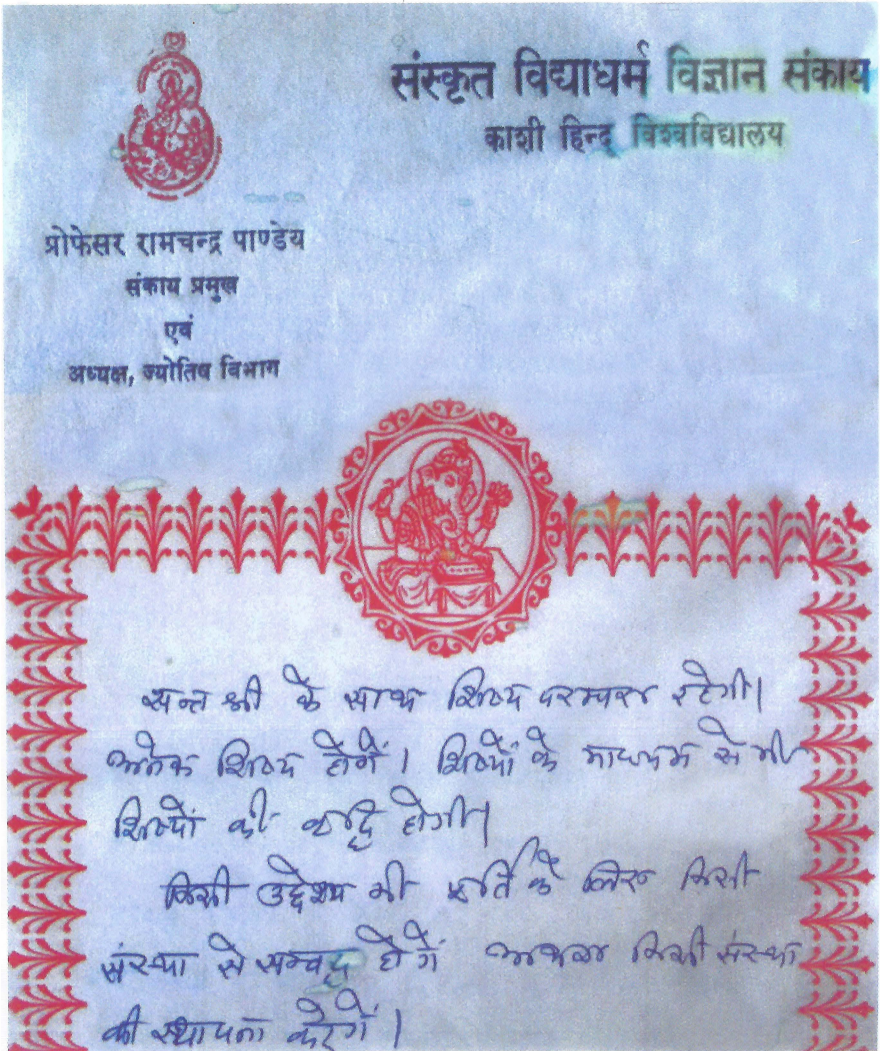 संस्कृत विद्याधर्म विज्ञान संकाय
काशी हिन्दू विश्वविद्यालय
प्रोफेसर रामचन्द्र पाण्डेय
संकाय प्रमुख
एवं
अध्यक्ष, ज्योतिष विभाग
सन्त श्री के साथ शिष्य परम्परा रहेगी।
अनेक शिष्य होगें। शिष्यों के माध्यम से भी
शिष्यों की वृद्धि होगी।
किसी उद्देश्य की पूर्ति के लिए किसी
संस्था से सम्बद्ध होगें अथवा किसी संस्था
की स्थापना करेगें।